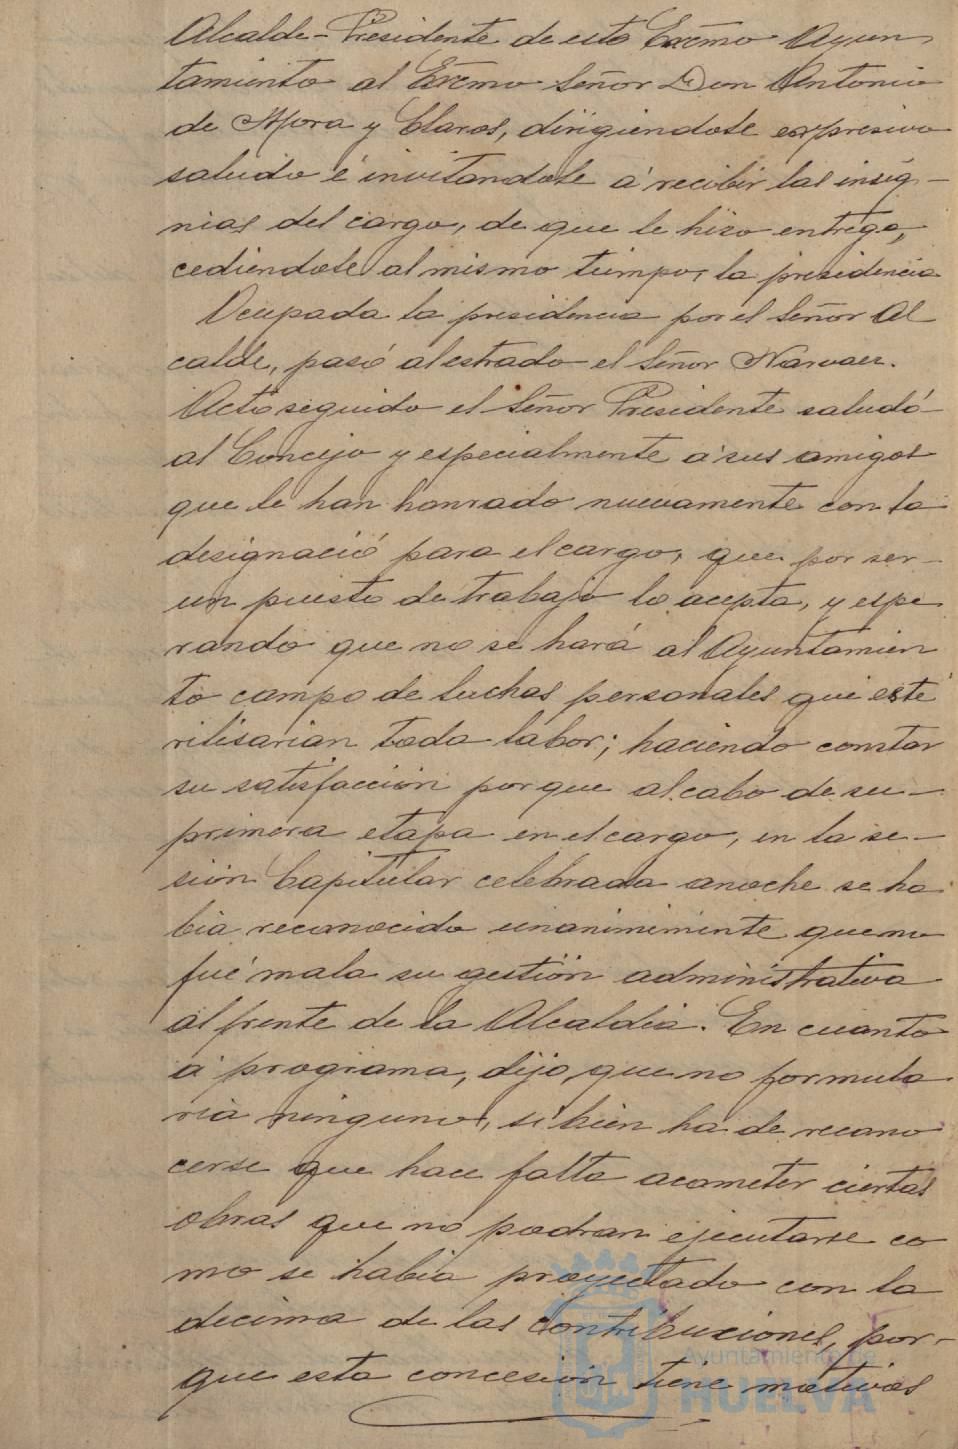 Alcalde-Presidente de este Excmo Ayun
tamiento al Excmo Señor Don Antonio
de Mora y Claros, dirigiendole expresivo
saludo é invitandole á recibir las insig-
nias del cargo, de que le hizo entrega,
cediendole al mismo tiempo, la presidencia
Ocupada la presidencia por el Señor Al
calde, pasó al estrado el Señor Narvaez.
Acto seguido el Señor Presidente saludó
al Concejo y especialmente á sus amigos
que le han honrado nuevamente con la
designació para el cargo, que por ser-
un puesto de trabajo lo acepta, y espe
rando que no se hará al Ayuntamien
to campo de luchas personales que esté
rilisarian toda labor; haciendo constar
su satisfacción porque al cabo de su-
primera etapa en el cargo, en la se-
sión Capitular celebrada anoche se ha
bia reconocido unanimimente que no
fué mala su gestión administrativa
al frente de la Alcaldia. En cuanto
á programa, dijo que no formula
ria ninguno, si bien ha de recono
cerse que hace falta acometer ciertas
obras que no podran ejecutarse co
mo se habia proyectado con la
decima de las contribuciones, por-
que esta concesion tiene motivos
Ayuntamiento de
HUELVA